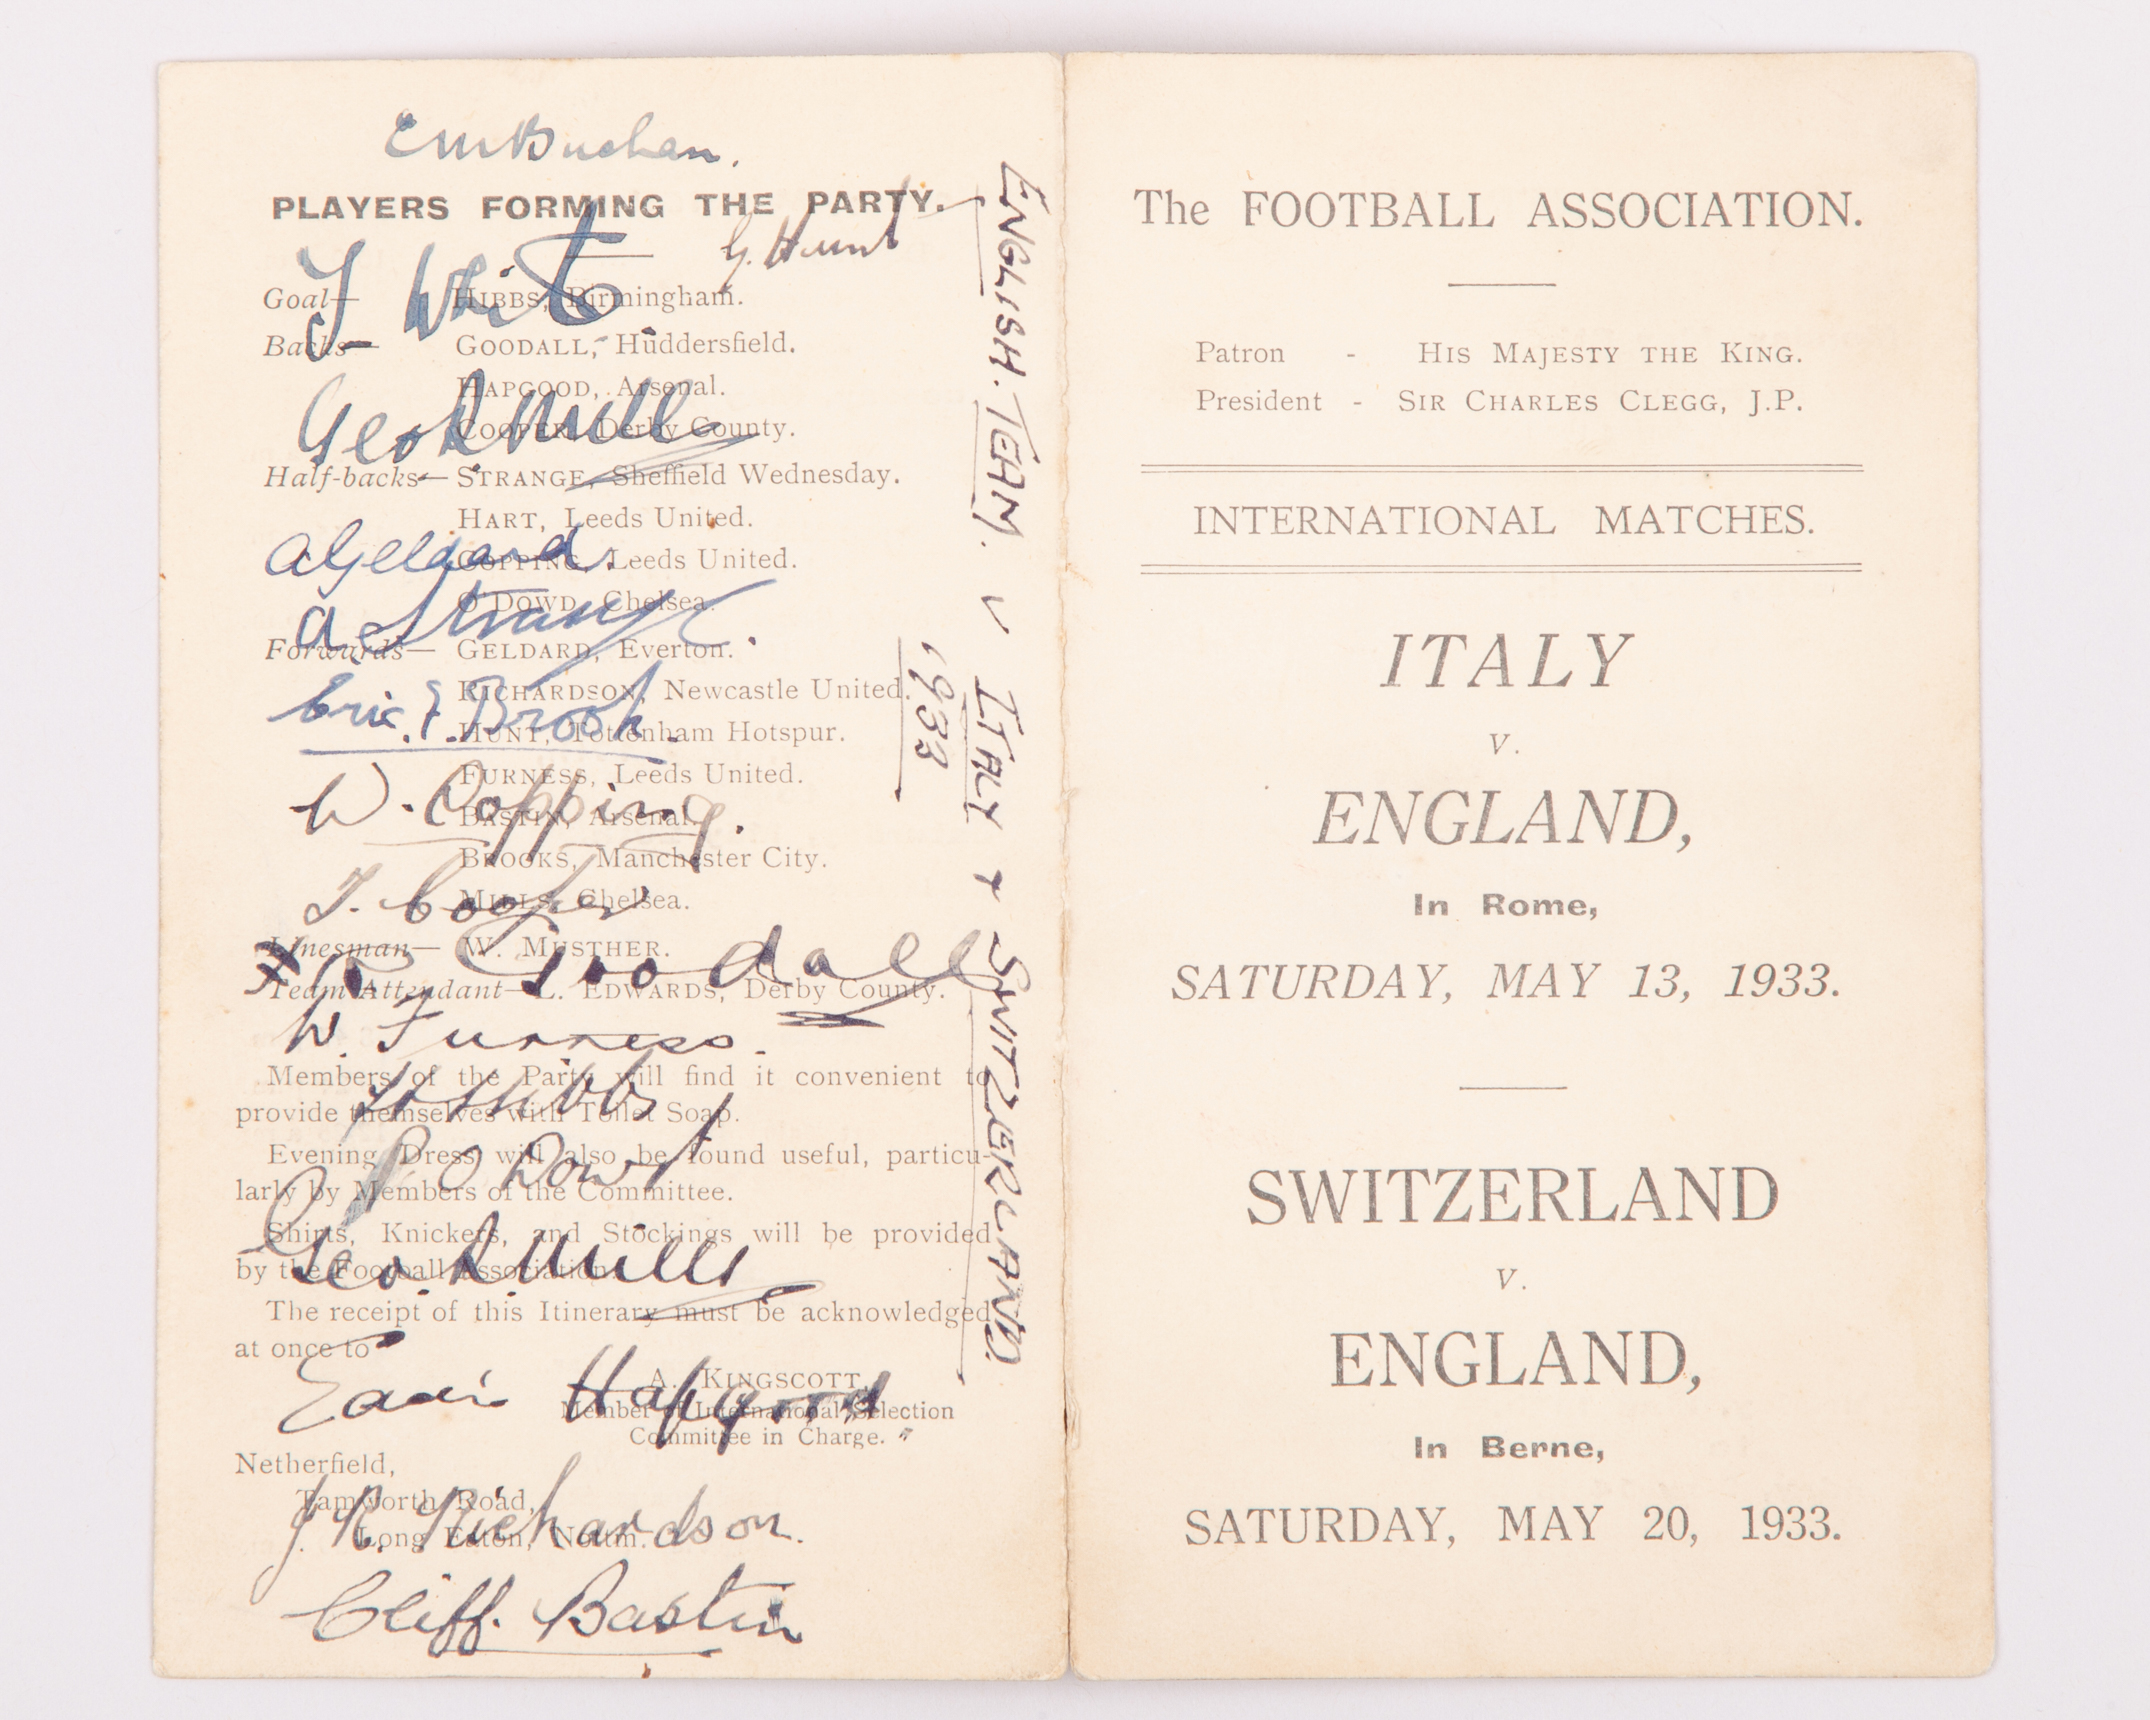 EmBuchan.
PLAYERS FORMING THE PARTY.
G. Hunt
T White
Goal— HIBBS, Birmingham.
Backs— GOODALL, Huddersfield.
HAPGOOD, Arsenal.
Geo R Mills
COOPER, Derby County.
Half-backs— STRANGE, Sheffield Wednesday.
HART, Leeds United.
A Geldard.
COPPING, Leeds United.
O'DOWD, Chelsea.
A. Strange.
Forwards— GELDARD, Everton.
RICHARDSON, Newcastle United.
Eric. F. Brook.
HUNT, Tottenham Hotspur.
FURNESS, Leeds United.
W. Copping.
BASTIN, Arsenal.
BROOKS, Manchester City.
T. Cooper
MILLS, Chelsea.
Linesman— W. MUSTHER.
Goodall
Team Attendant—L. EDWARDS, Derby County.
W. Furness.
Members of the Party will find it convenient to
provide themselves with Toilet Soap.
H Hibbs
Evening Dress will also be found useful, particu-
P O'Dowd
larly by Members of the Committee.
Shirts, Knickers, and Stockings will be provided
by the Football Association.
Geo R Mills
The receipt of this Itinerary must be acknowledged
at once to
A. KINGSCOTT,
Eddie Hapgood
Member of International Selection
Committee in Charge.
Netherfield,
Tamworth Road,
J R. Richardson.
Long Eaton, Nottm.
Cliff. Bastin
ENGLISH. TEAM. V ITALY + SWITZERLAND.
1933
The FOOTBALL ASSOCIATION.
Patron - HIS MAJESTY THE KING.
President - SIR CHARLES CLEGG, J.P.
INTERNATIONAL MATCHES.
ITALY
v.
ENGLAND,
In Rome,
SATURDAY, MAY 13, 1933.
SWITZERLAND
v.
ENGLAND,
In Berne,
SATURDAY, MAY 20, 1933.